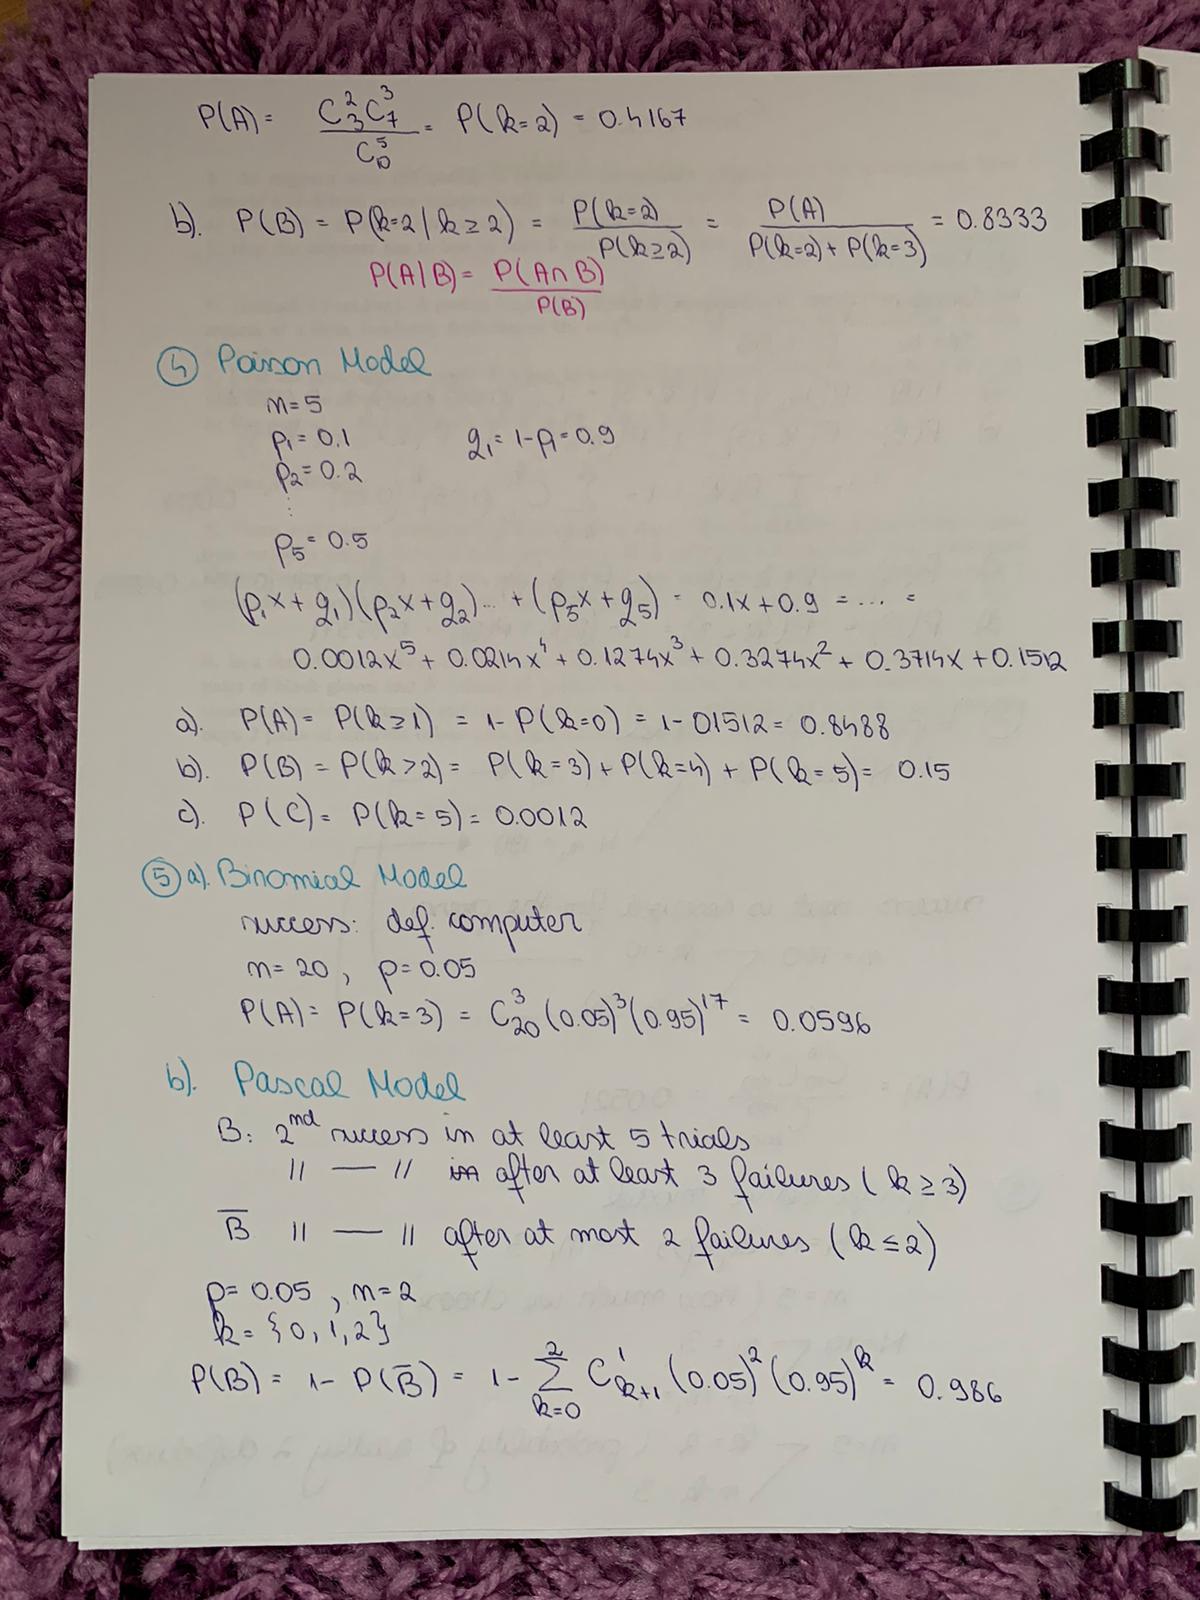 P(A) = C₃²C₇³ / C₁₀⁵ = P(k=2) = 0.4167
b). P(B) = P(k=2 | k≥2) = P(k=2) / P(k≥2) = P(A) / P(k=2) + P(k=3) = 0.8333
P(A|B) = P(A∩B) / P(B)
④ Poisson Model
n=5
p₁ = 0.1 q₁ = 1-p₁ = 0.9
p₂ = 0.2
⋮
p₅ = 0.5
(p₁x + q₁)(p₂x + q₂)... + (p₅x + q₅) = 0.1x + 0.9 = ... =
0.0012x⁵ + 0.0214x⁴ + 0.1274x³ + 0.3274x² + 0.3714x + 0.1512
a). P(A) = P(k≥1) = 1- P(k=0) = 1- 01512 = 0.8488
b). P(B) = P(k>2) = P(k=3) + P(k=4) + P(k=5) = 0.15
c). P(C) = P(k=5) = 0.0012
⑤ a). Binomial Model
success: def. computer
n= 20, p= 0.05
P(A) = P(k=3) = C₂₀³ (0.05)³ (0.95)¹⁷ = 0.0596
b). Pascal Model
B: 2nd success in at least 5 trials
〃 — 〃 after at least 3 failures (k≥3)
B̅ 〃 — 〃 after at most 2 failures (k≤2)
p= 0.05, n= 2
k= {0, 1, 2}
P(B) = 1- P(B̅) = 1- ∑ₖ₌₀² Cₖ₊₁¹ (0.05)² (0.95)ᵏ = 0.986